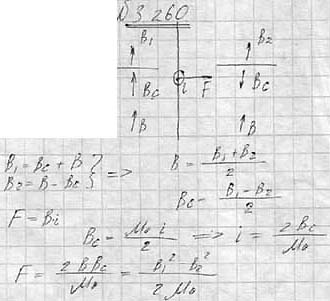 №3.260
B₁ B₂
Bc i F Bc
B B
B₁ = Bc + B } => B = (B₁ + B₂)/2
B₂ = B - Bc } Bc = (B₁ - B₂)/2
F = Bi
Bc = μ₀ i/2 => i = 2Bc/μ₀
F = 2BBc/μ₀ = (B₁² - B₂²)/(2μ₀)